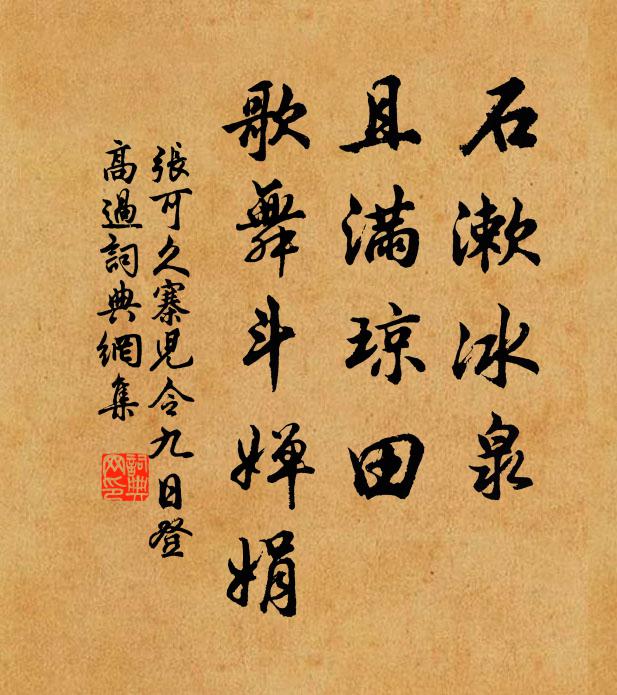 石漱冰泉
且满琼田
歌舞斗婵娟
張可久寨兒令九日登
高過詞典網集
詞典
网印